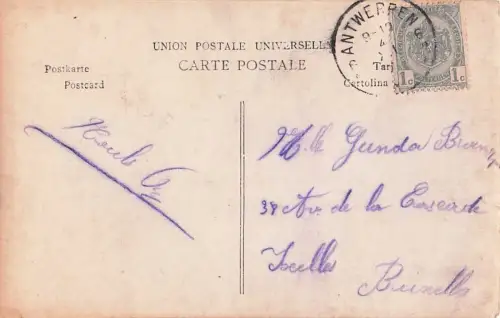 UNION POSTALE UNIVERSELLE
CARTE POSTALE
Postkarte
Postcard
Tarj
Cartolina
ANTWERPEN 6
8-12
4
1c 1c
Mlle Gunda
38 Av. de la Cascade
Ixelles
Bruxelles